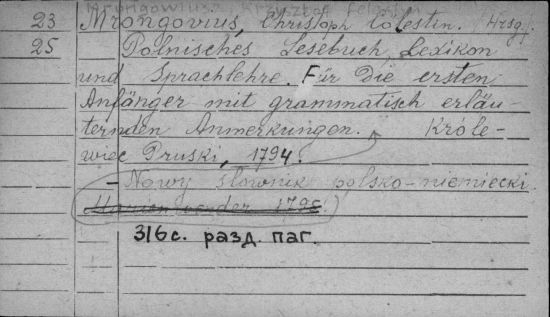 Mrongowius, Krzysztof Celestyn
23 Mrongovius, Christoph Cölestin. (Hrsg.)
25 Polnisches Lesebuch, Lexikon
und Sprachlehre. Für die ersten
Anfänger mit grammatisch erläu-
ternden Anmerkungen. Króle-
wiec Pruski, 1794.
– Nowy słownik polsko-niemiecki.
Marienwerder 1795.)
316 с. разд. паг.